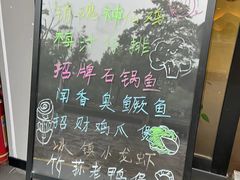 销魂神仙鸡
梅汁小排
招牌石锅鱼
闻香臭鳜鱼
招财鸡爪煲
冰镇小龙虾
竹荪老鸭